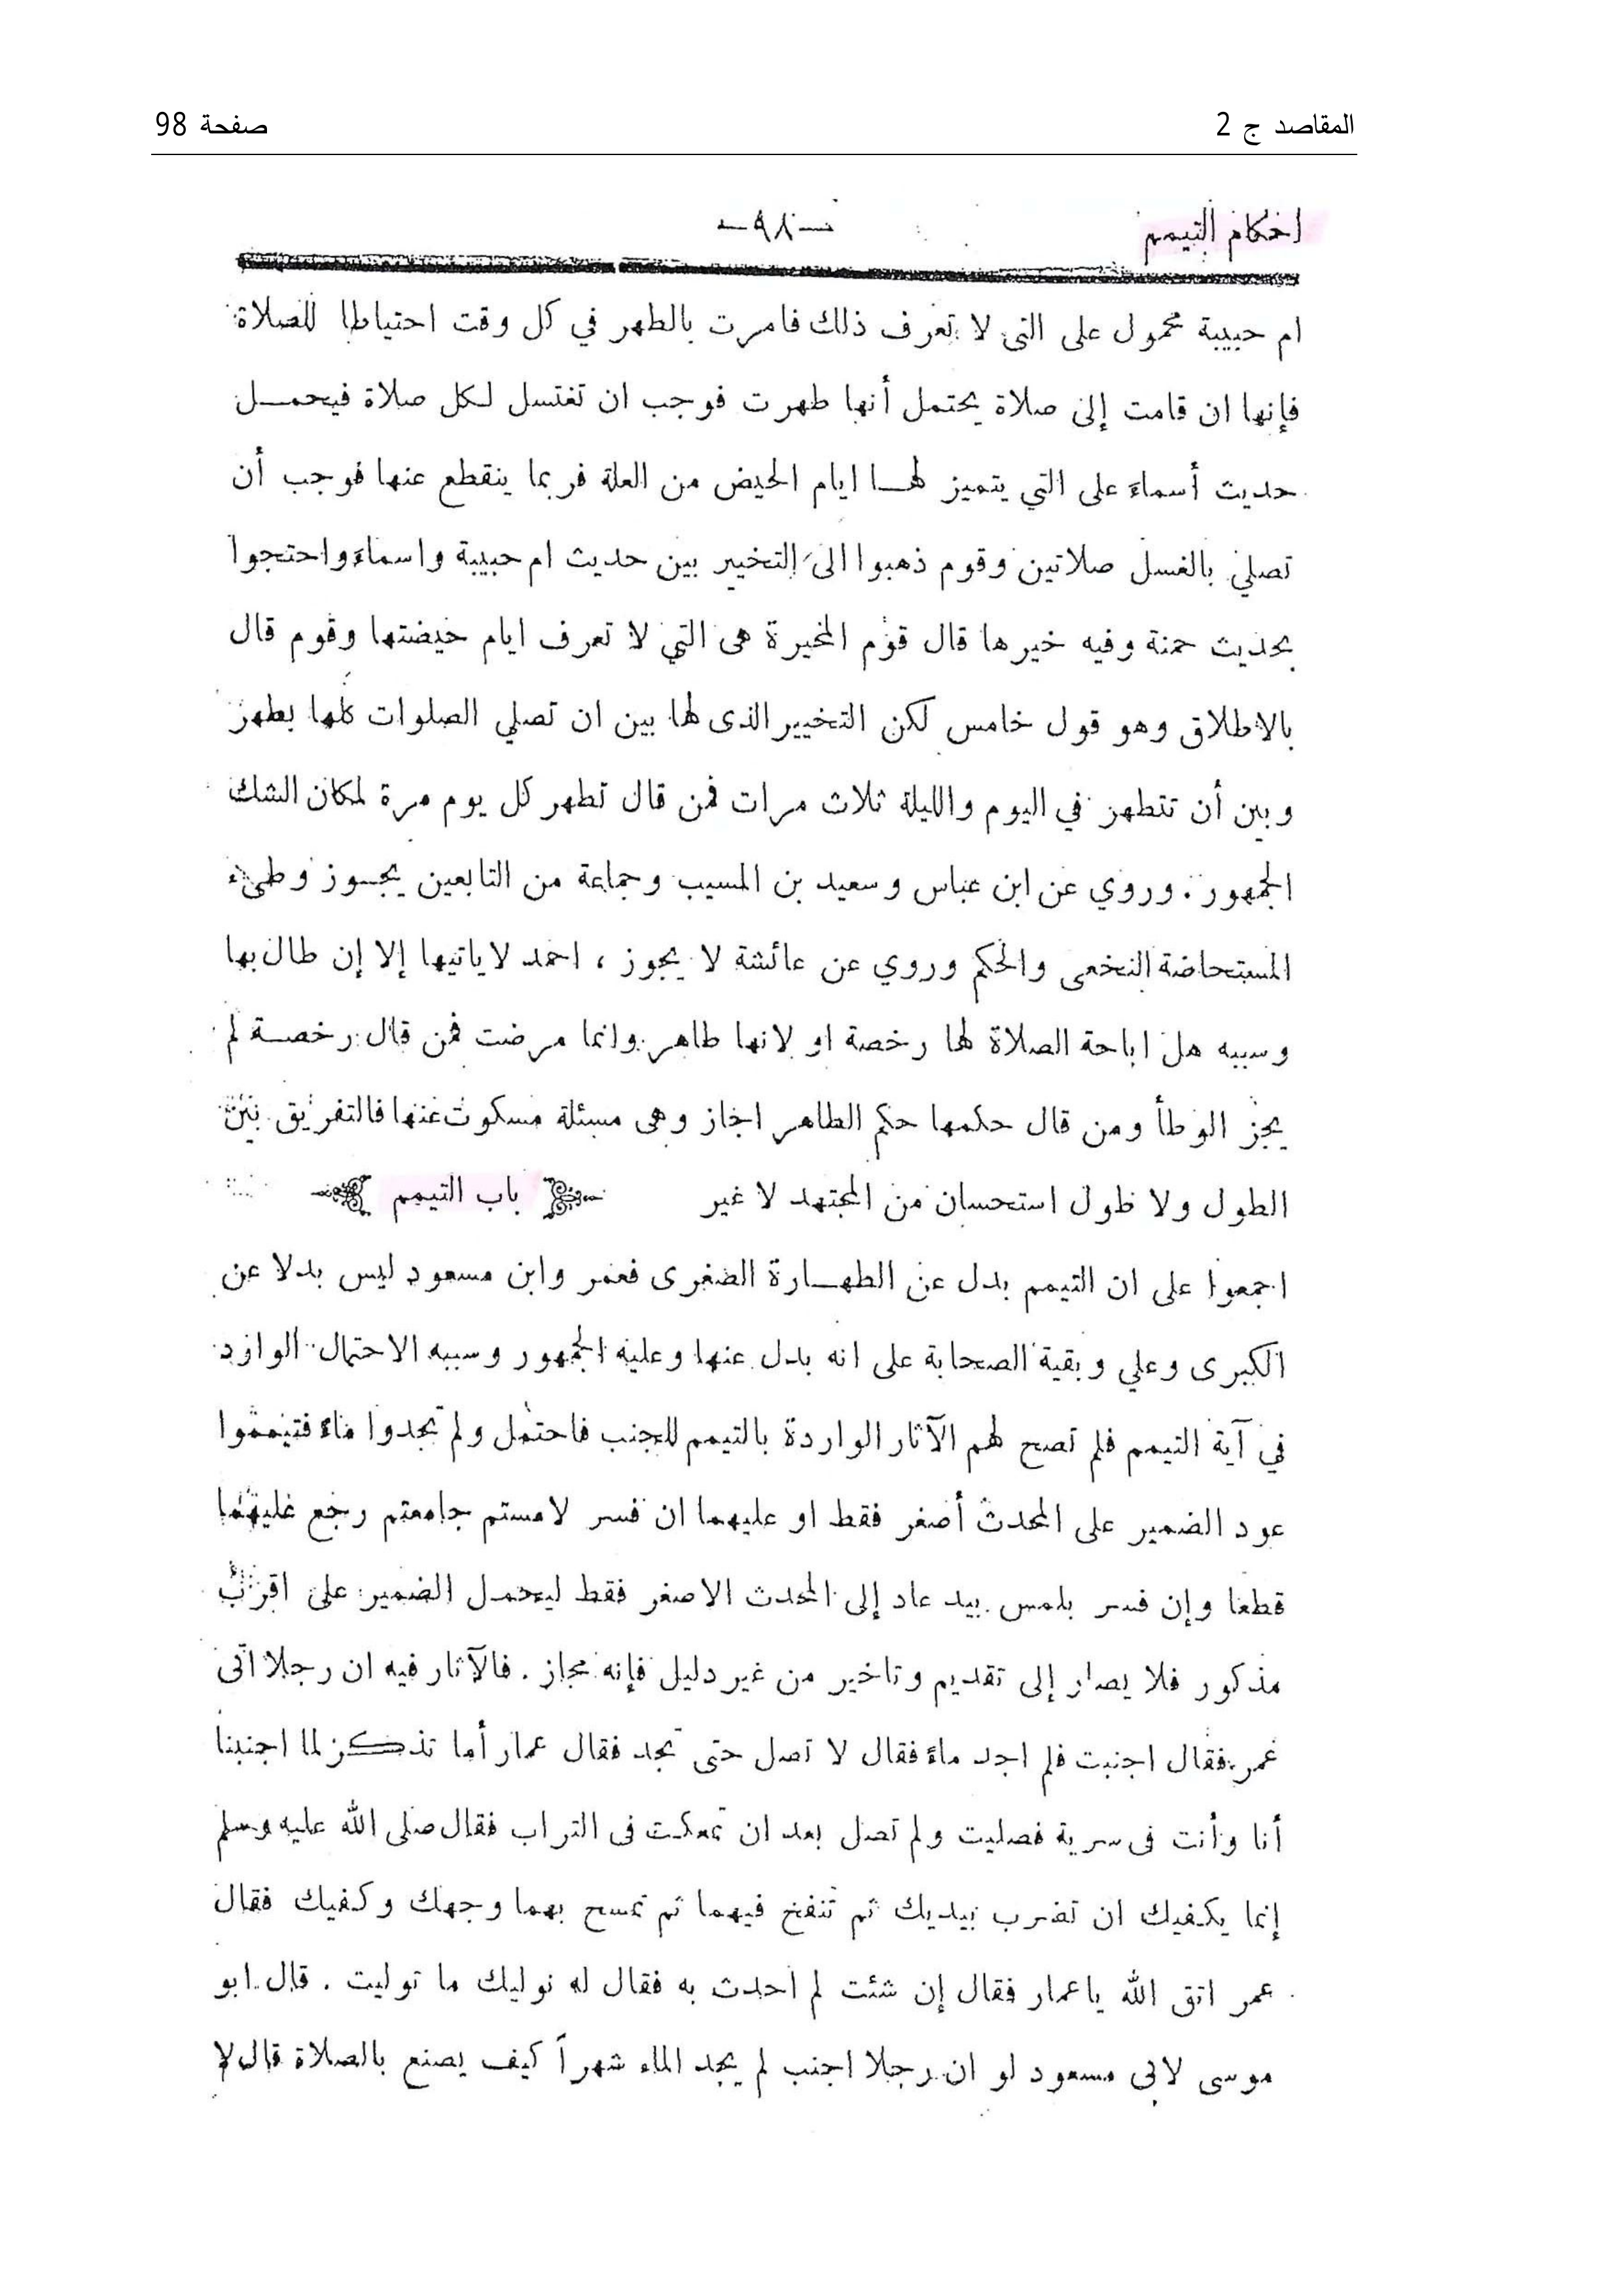 المقاصد ج 2
صفحة 98
احكام التيمم
— ٩٨ —
ام حبيبة محمول على التى لا تعرف ذلك فامرت بالطهر في كل وقت احتياطا للصلاة
فإنها ان قامت إلى صلاة يحتمل أنها طهرت فوجب ان تغتسل لكل صلاة فيحمل
حديث أسماء على التي يتميز لها ايام الحيض من العلة فربما ينقطع عنها فوجب أن
تصلي بالغسل صلاتين وقوم ذهبوا الى التخيير بين حديث ام حبيبة واسماء واحتجوا
بحديث حمنة وفيه خيرها قال قوم المخيرة هى التي لا تعرف ايام حيضتها وقوم قال
بالاطلاق وهو قول خامس لكن التخيير الذى لها بين ان تصلي الصلوات كلها بطهر
وبين أن تتطهر في اليوم والليلة ثلاث مرات فمن قال تطهر كل يوم مرة لمكان الشك
الجمهور . وروي عن ابن عباس وسعيد بن المسيب وجماعة من التابعين يجوز وطىء
المستحاضة النخعى والحكم وروي عن عائشة لا يجوز ، احمد لاياتيها إلا إن طال بها
وسببه هل اباحة الصلاة لها رخصة او لانها طاهر وانما مرضت فمن قال رخصة لم
يجز الوطأ ومن قال حكمها حكم الطاهر اجاز وهى مسئلة مسكوت عنها فالتفريق بين
الطول ولا طول استحسان من المجتهد لا غير
باب التيمم
اجمعوا على ان التيمم بدل عن الطهارة الصغرى فعمر وابن مسعود ليس بدلا عن
الكبرى وعلي وبقية الصحابة على انه بدل عنها وعليه الجمهور وسببه الاحتمال الوارد
في آية التيمم فلم تصح لهم الآثار الواردة بالتيمم للجنب فاحتمل ولم تجدوا ماء فتيمموا
عود الضمير على المحدث أصغر فقط او عليهما ان فسر لامستم جامعتم رجع عليهما
قطعا وإن فسر بلمس بيد عاد إلى المحدث الاصغر فقط ليحمل الضمير على اقرب
مذكور فلا يصار إلى تقديم وتاخير من غير دليل فإنه مجاز . فالآثار فيه ان رجلا اتى
عمر فقال اجنبت فلم اجد ماء فقال لا تصل حتى تجد فقال عمار أما تذكر لما اجنبنا
أنا وأنت فى سرية فصليت ولم تصل بعد ان تمعكت فى التراب فقال صلى الله عليه وسلم
إنما يكفيك ان تضرب بيديك ثم تنفخ فيهما ثم تمسح بهما وجهك وكفيك فقال
عمر اتق الله ياعمار فقال إن شئت لم احدث به فقال له نوليك ما توليت . قال ابو
موسى لابى مسعود لو ان رجلا اجنب لم يجد الماء شهراً كيف يصنع بالصلاة قال لا